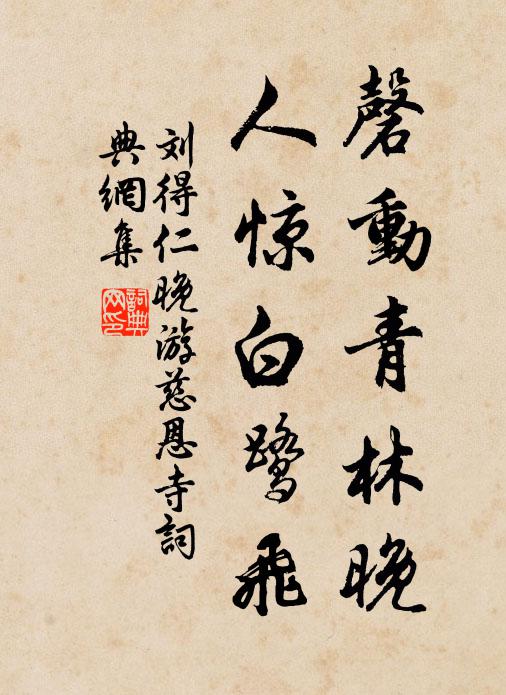 磬動青林晚
人惊白鹭飛
刘得仁晚游慈恩寺詞
典網集
詞典网印